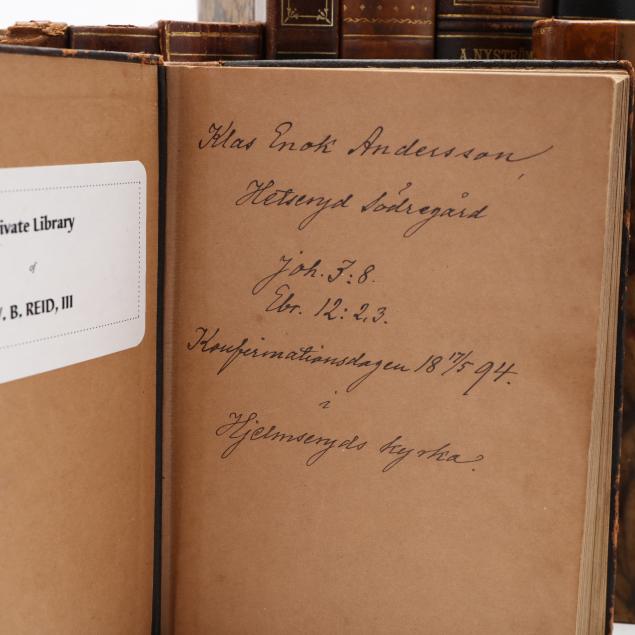 A. NYSTRÖM
ivate Library
of
. B. REID, III
Klas Enok Andersson,
Hetseryd Södregård
Joh. 3:8.
Ebr. 12:2,3.
Konfirmationsdagen 18 17/5 94.
i
Hjelmseryds kyrka.